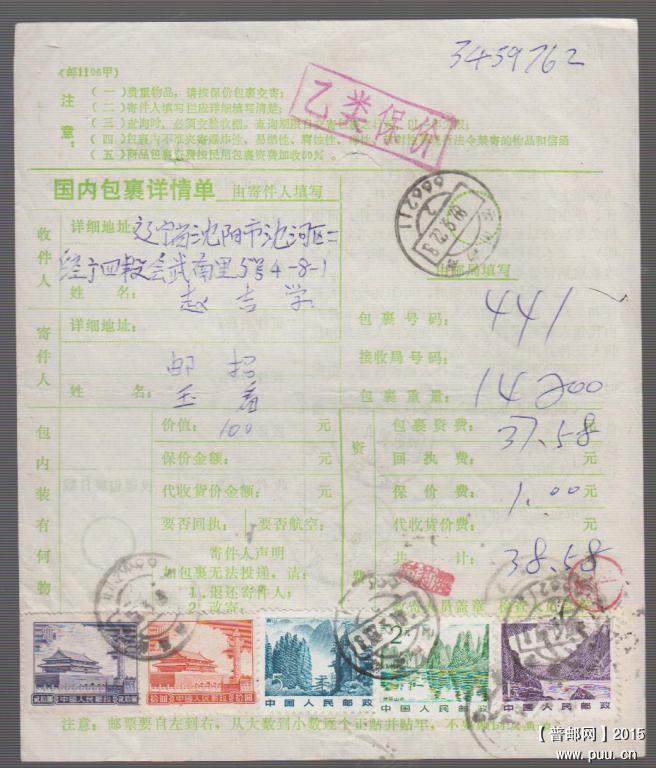 3459762
(邮1106甲)
注意：
(一)贵重物品，请按保价包裹交寄；
(二)寄件人填写栏应详细填写清楚；
(三)查询时，必须交验收据，查询期限自交寄
(四)包裹内不准夹寄爆炸性、易燃性、腐蚀性、法令禁寄的物品和信函
(五)商品包裹资费按民用包裹资费加收50%。
乙类保价
国内包裹详情单 由寄件人填写
666211
由邮局填写
收件人
详细地址：辽宁省沈阳市沈河区二
经
四段会武南里5号4-8-1
姓名：赵吉学
寄件人
详细地址：
邮
姓名：玉
包裹号码：441
接收局号码：
包裹重量：14200
包内装有何物
价值：100元
保价金额：元
代收货价金额：元
要否回执： 要否航空：
寄件人声明
如包裹无法投递，请：
1.退还寄件人；
2.改寄：
资费
包裹资费：37.58元
回执费：元
保价费：1.00元
代收货价费：元
共计：38.58
收寄人员盖章 检查人员
中国人民邮政
中国人民邮政
5 中国人民邮政
2元 中国人民邮政
1元 中国人民邮政
注意：邮票要自左到右，从大数到小数逐个正贴并贴牢，不
【普邮网】2015
www.puu.cn